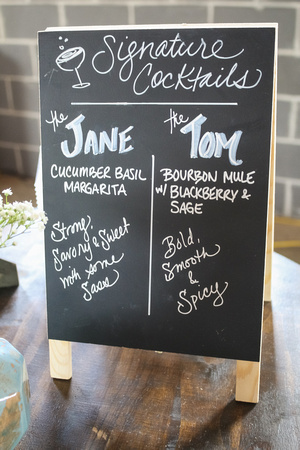 Signature
Cocktails
the JANE
CUCUMBER BASIL
MARGARITA
Strong,
Savory & Sweet
with some
Sass
the TOM
BOURBON MULE
w/ BLACKBERRY &
SAGE
Bold,
Smooth
&
Spicy